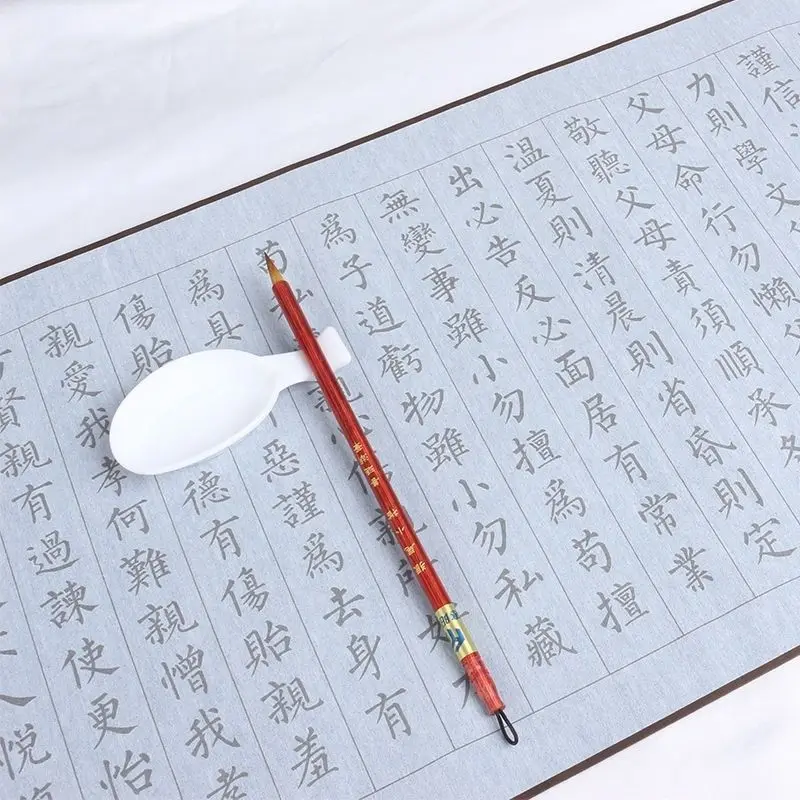 謹信
力則學文
父母命行勿懶
敬聽父母責須順承
溫夏則清晨則省昏則定
出必告反必面居有常業
無變事雖小勿擅為苟擅
為子道虧物雖小勿私藏
苟私親心親
為具惡謹為去身有
傷貽德有傷貽親羞
親愛我孝何難親憎我孝
賢親有過諫使更怡
悅